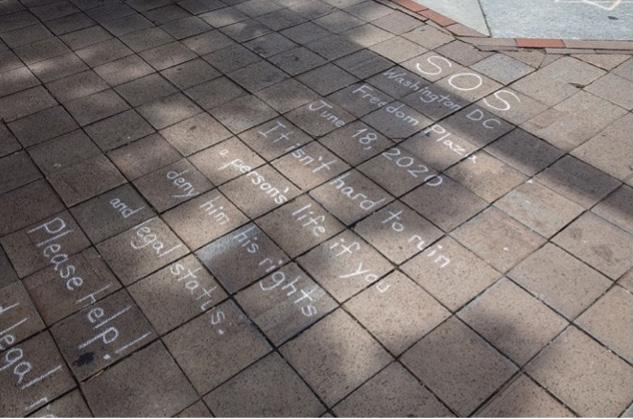 SOS
Washington DC
Freedom Plaza
June 18, 2020
It isn't hard to ruin
a person's life if you
deny him his rights
and legal status.
Please help!
legal